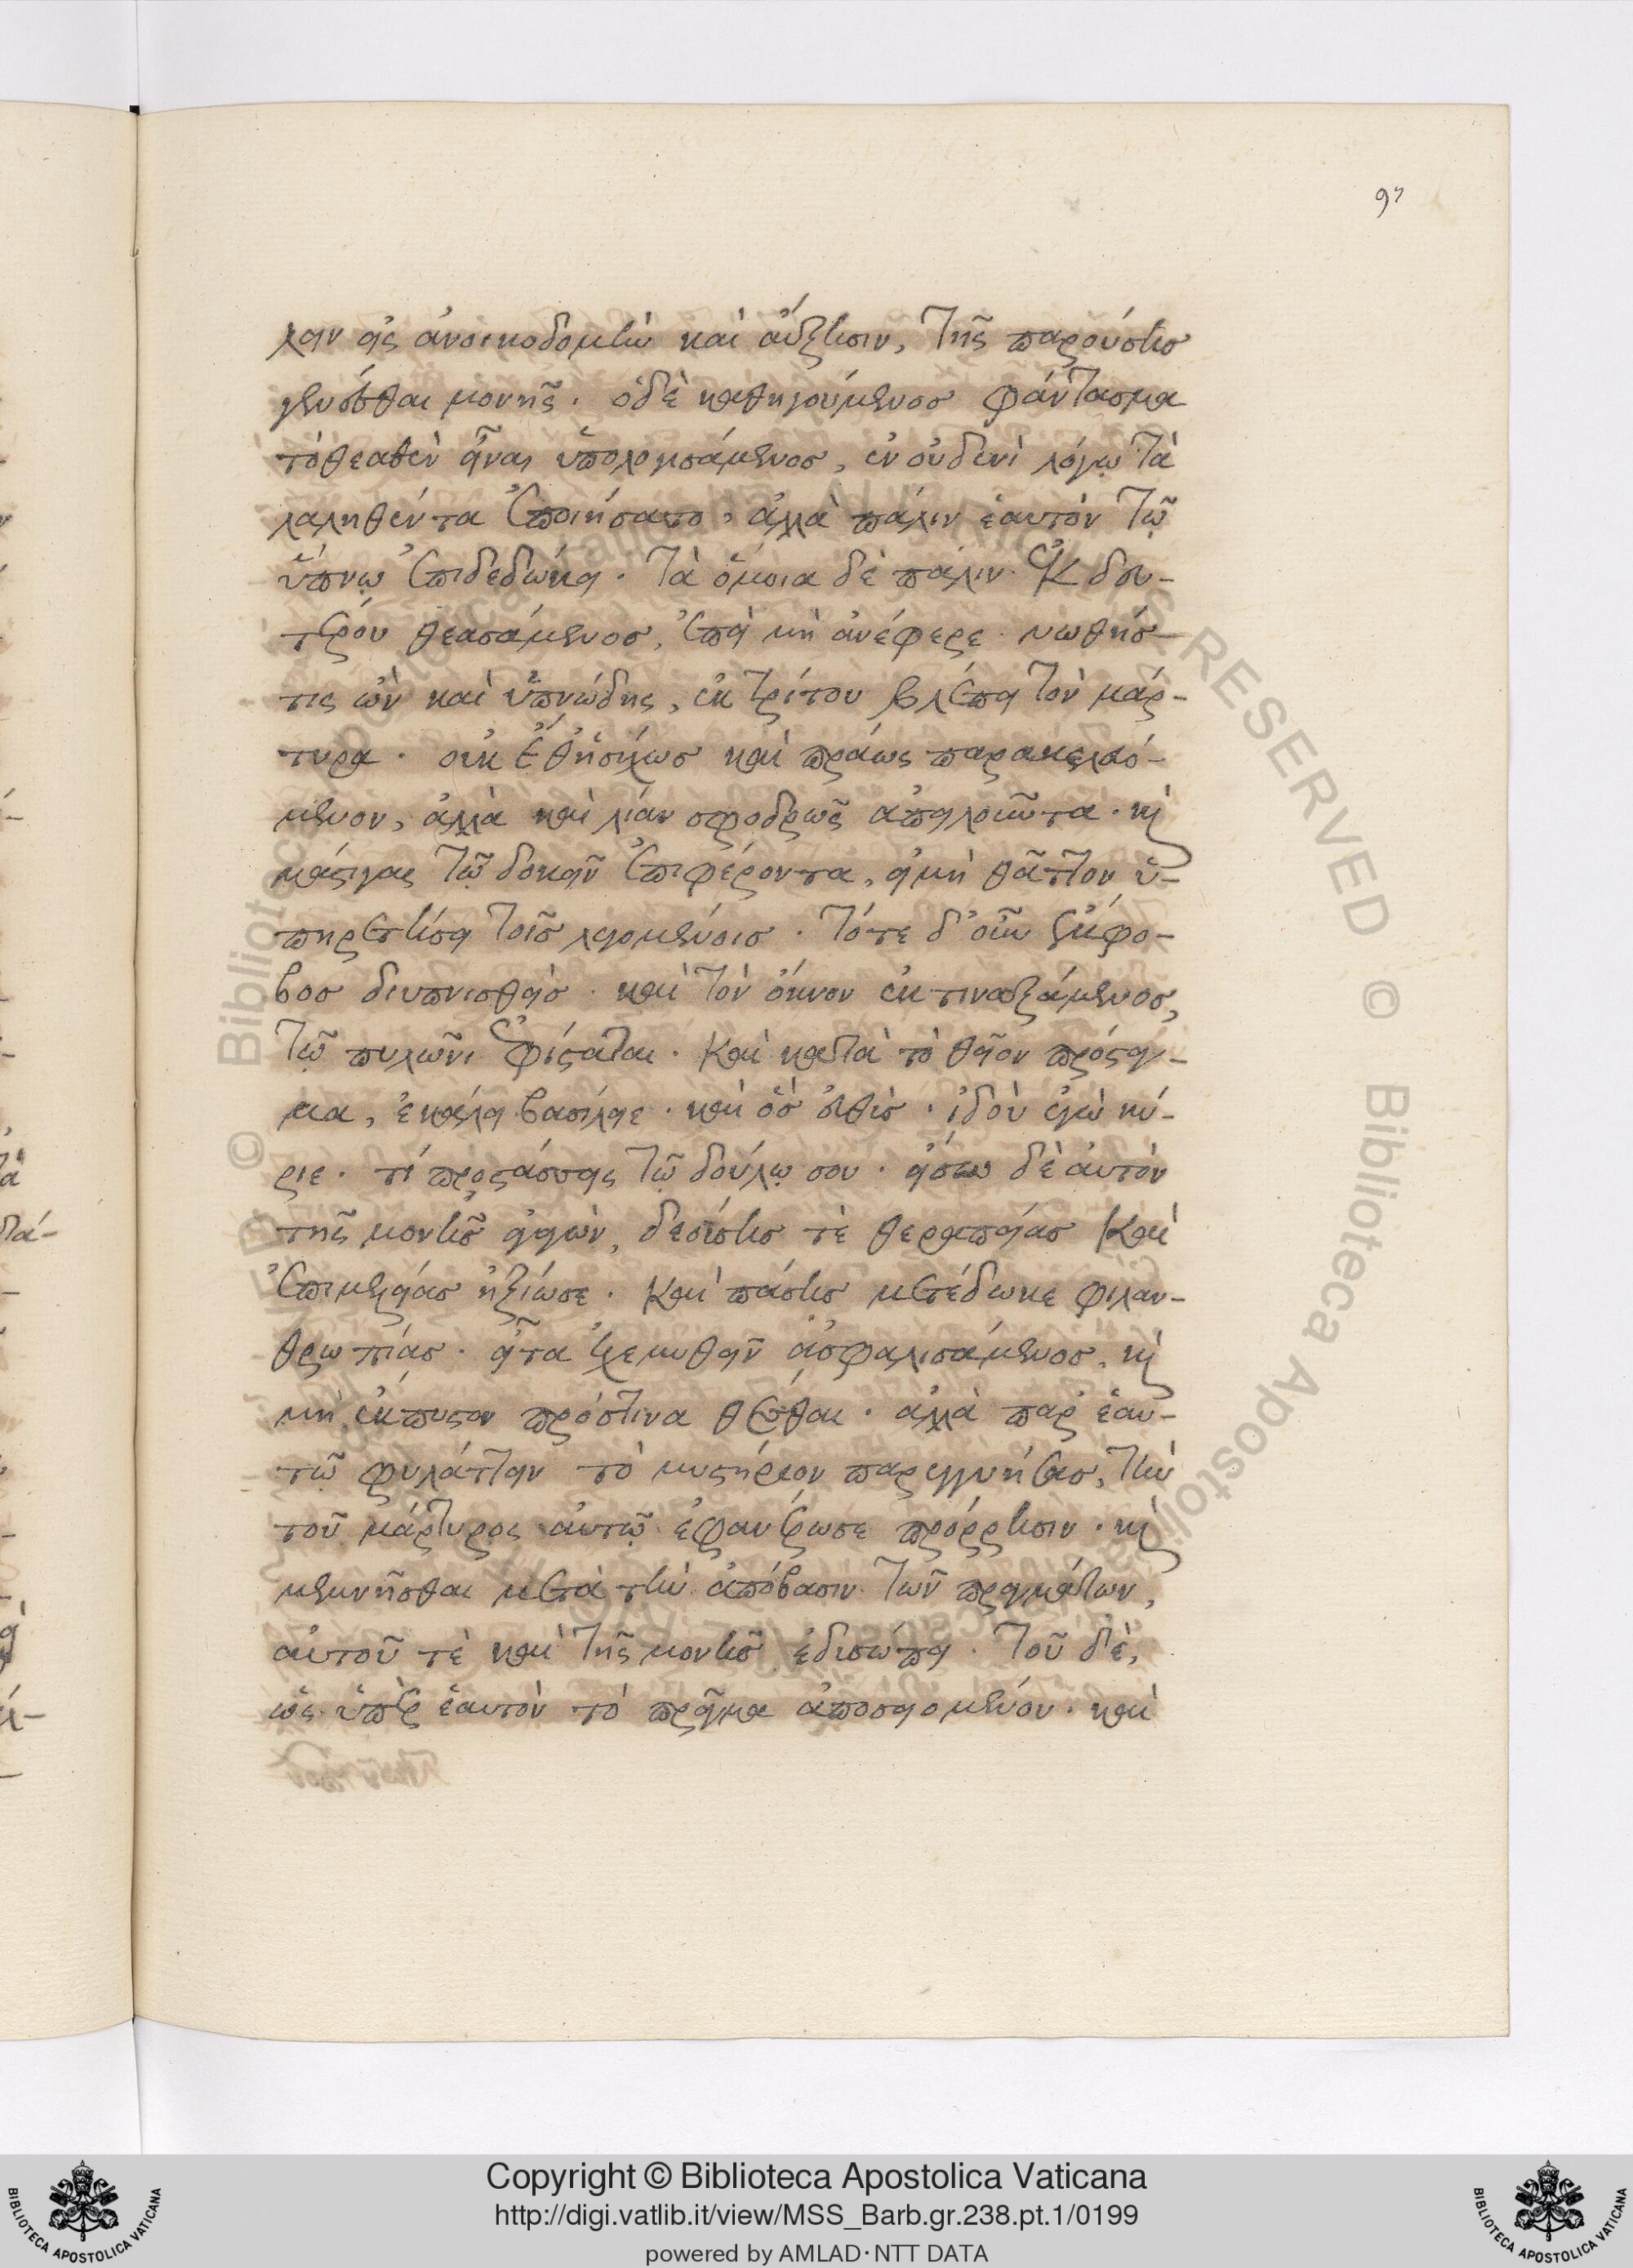 97
χειν εἰς ἀνοικοδομὴν καὶ αὔξησιν, τῆς παρούσης
γενέσθαι μονῆς. ὁδὲ καθηγούμενος φάντασμα
τὸ θεαθὲν εἶναι ὑπολογισάμενος, ἐν οὐδενὶ λόγῳ τὰ
λαληθέντα ἐποιήσατο, ἀλλὰ πάλιν ἑαυτὸν τῷ
ὕπνῳ ἐπιδεδώκει. τὰ ὅμοια δὲ πάλιν ἐκ δευ-
τέρου θεασάμενος, ἐπεὶ μὴ ἀνέφερε νωθής
τις ὢν καὶ ὑπνώδης, ἐκ τρίτου βλέπει τὸν μάρ-
τυρα. οὐκ ἔθ' ἡσύχως καὶ πράως παρακελευό-
μενον, ἀλλὰ καὶ λίαν σφοδρῶς ἀπειλοῦντα. καὶ
μάστιγας τῷ δοκεῖν ἐπιφέροντα, εἰμὴ θᾶττον ὑ-
πηρετήσει τοῖς λεγομένοις. τότε δ' οὖν ἔκφο-
βος διυπνισθεὶς. καὶ τὸν ὄκνον ἐκτιναξάμενος,
τῷ πυλῶνι ἐφίσταται. καὶ κατὰ τὸ θεῖον πρόσταγ-
μα, ἐκάλει βασίλειε. καὶ ὃς εὐθὺς. ἰδοὺ ἐγὼ κύ-
ριε. τί προστάσσεις τῷ δούλῳ σου. εἴσω δὲ αὐτὸν
τῆς μονῆς εἰσαγαγὼν, δεξιώσεως τὲ θεραπείας καὶ
ἐπιμελείας ἠξίωσε. καὶ πάσης μετέδωκε φιλαν-
θρωπίας. εἶτα ἐχεμυθεῖν ἀσφαλισάμενος, καὶ
μὴ ἔκπυστον πρόστινα θέσθαι. ἀλλὰ παρ' ἑαυ-
τῷ φυλάττειν τὸ μυστήριον παρεγγυήσας, τὴν
τοῦ μάρτυρος αὐτῷ ἐφανέρωσε πρόρρησιν. καὶ
μεμνῆσθαι μετὰ τὴν ἀπόβασιν τῶν πραγμάτων,
αὐτοῦ τὲ καὶ τῆς μονῆς ἐδυσώπει. τοῦ δὲ,
ὡς ὑπὲρ ἑαυτὸν τὸ πρᾶγμα ἀποσειομένου. καὶ
Copyright © Biblioteca Apostolica Vaticana
http://digi.vatlib.it/view/MSS_Barb.gr.238.pt.1/0199
powered by AMLAD·NTT DATA